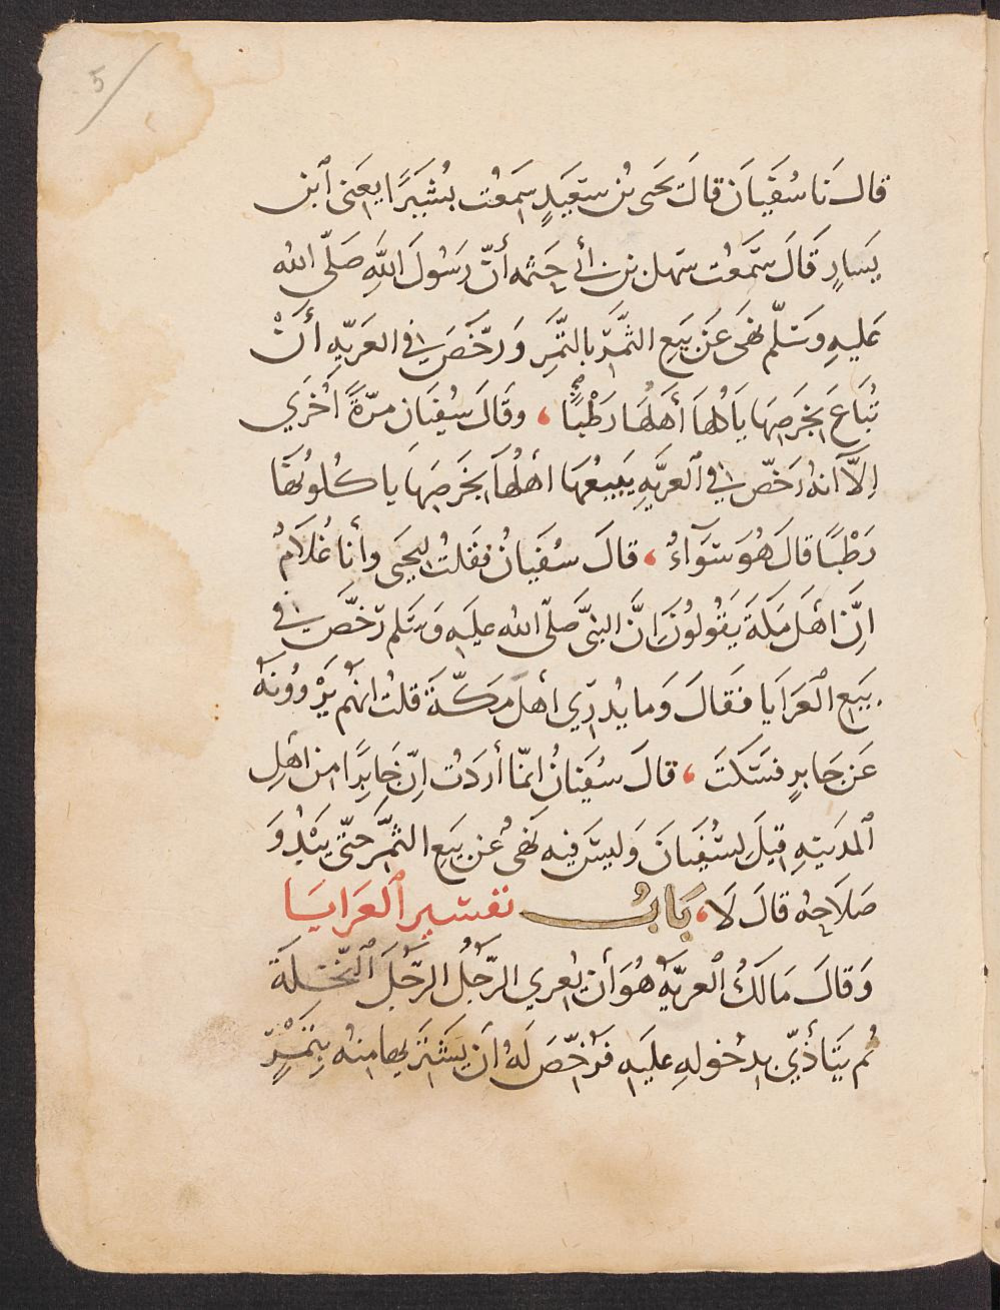 5
قالَ نَا سُفيَانَ قالَ يَحيَى بُن سَعِيدٍ سَمِعُت بُشَيرًا يعني ابن
يَسارٍ قَالَ سَمَّعت سَهل بن أبي حَثمه أنّ رَسُولَ اللهِ صَلّى الله
عَليهِ وَسَلّم نهَى عَن بَيعِ الثَّمَرّ بالتَّمَرِ وَرَخَّصَ في العَريّهِ أنْ
تُبَاعَ بِخَرَصِهَا يَاكلها أهَلهَا رَطْبًا، وقَالَ سُفيَان مَرّةً اُخَري
اِلّا انهُ رَخَّص في العَريّهِ يَبيعُهَا اهلُها بِخَرصِهَا ياكلونُهَا
رَطْبًا قالَ هُوَ سَوَآءٌ، قالَ سُفيَانُ فقَلتُ ليحَيى وأنا غُلَامٌ
اِنّ اهَل مَكة يَقُولُونَ اِنَّ النبيَّ صَلّى الله عليَهِ وَسَلم رَخَّص في
بَيَع العَرَايَا فقَالَ وَما يُدرِي اهل مَكّة قلتُ انهُم يَرْوُونهُ
عَن جَابرٍ فسَكتَ، قالَ سُفيَانُ انمّا أردَتُ اِنّ جَابِرًا من اهَلِ
المدَينةِ قيلَ لِسُفيَانَ وَليسَ فيهِ نَهى عُن بَيَع الثمَّرَ حتى يَبْدُوَ
صَلَاحهُ قالَ لَا، بَابُ تفسَير العَرايَا
وَقالَ مَالَكُ العَريّهُ هُوَ أن يُعرِي الرّجُلُ الرّجُلَ النّخَلَةَ
ثُم يتَأذّي بدخُولهِ عليَهِ فرَخّصَ لهُ اَن يَشَتريهَا منهُ بِتَمْرٍ